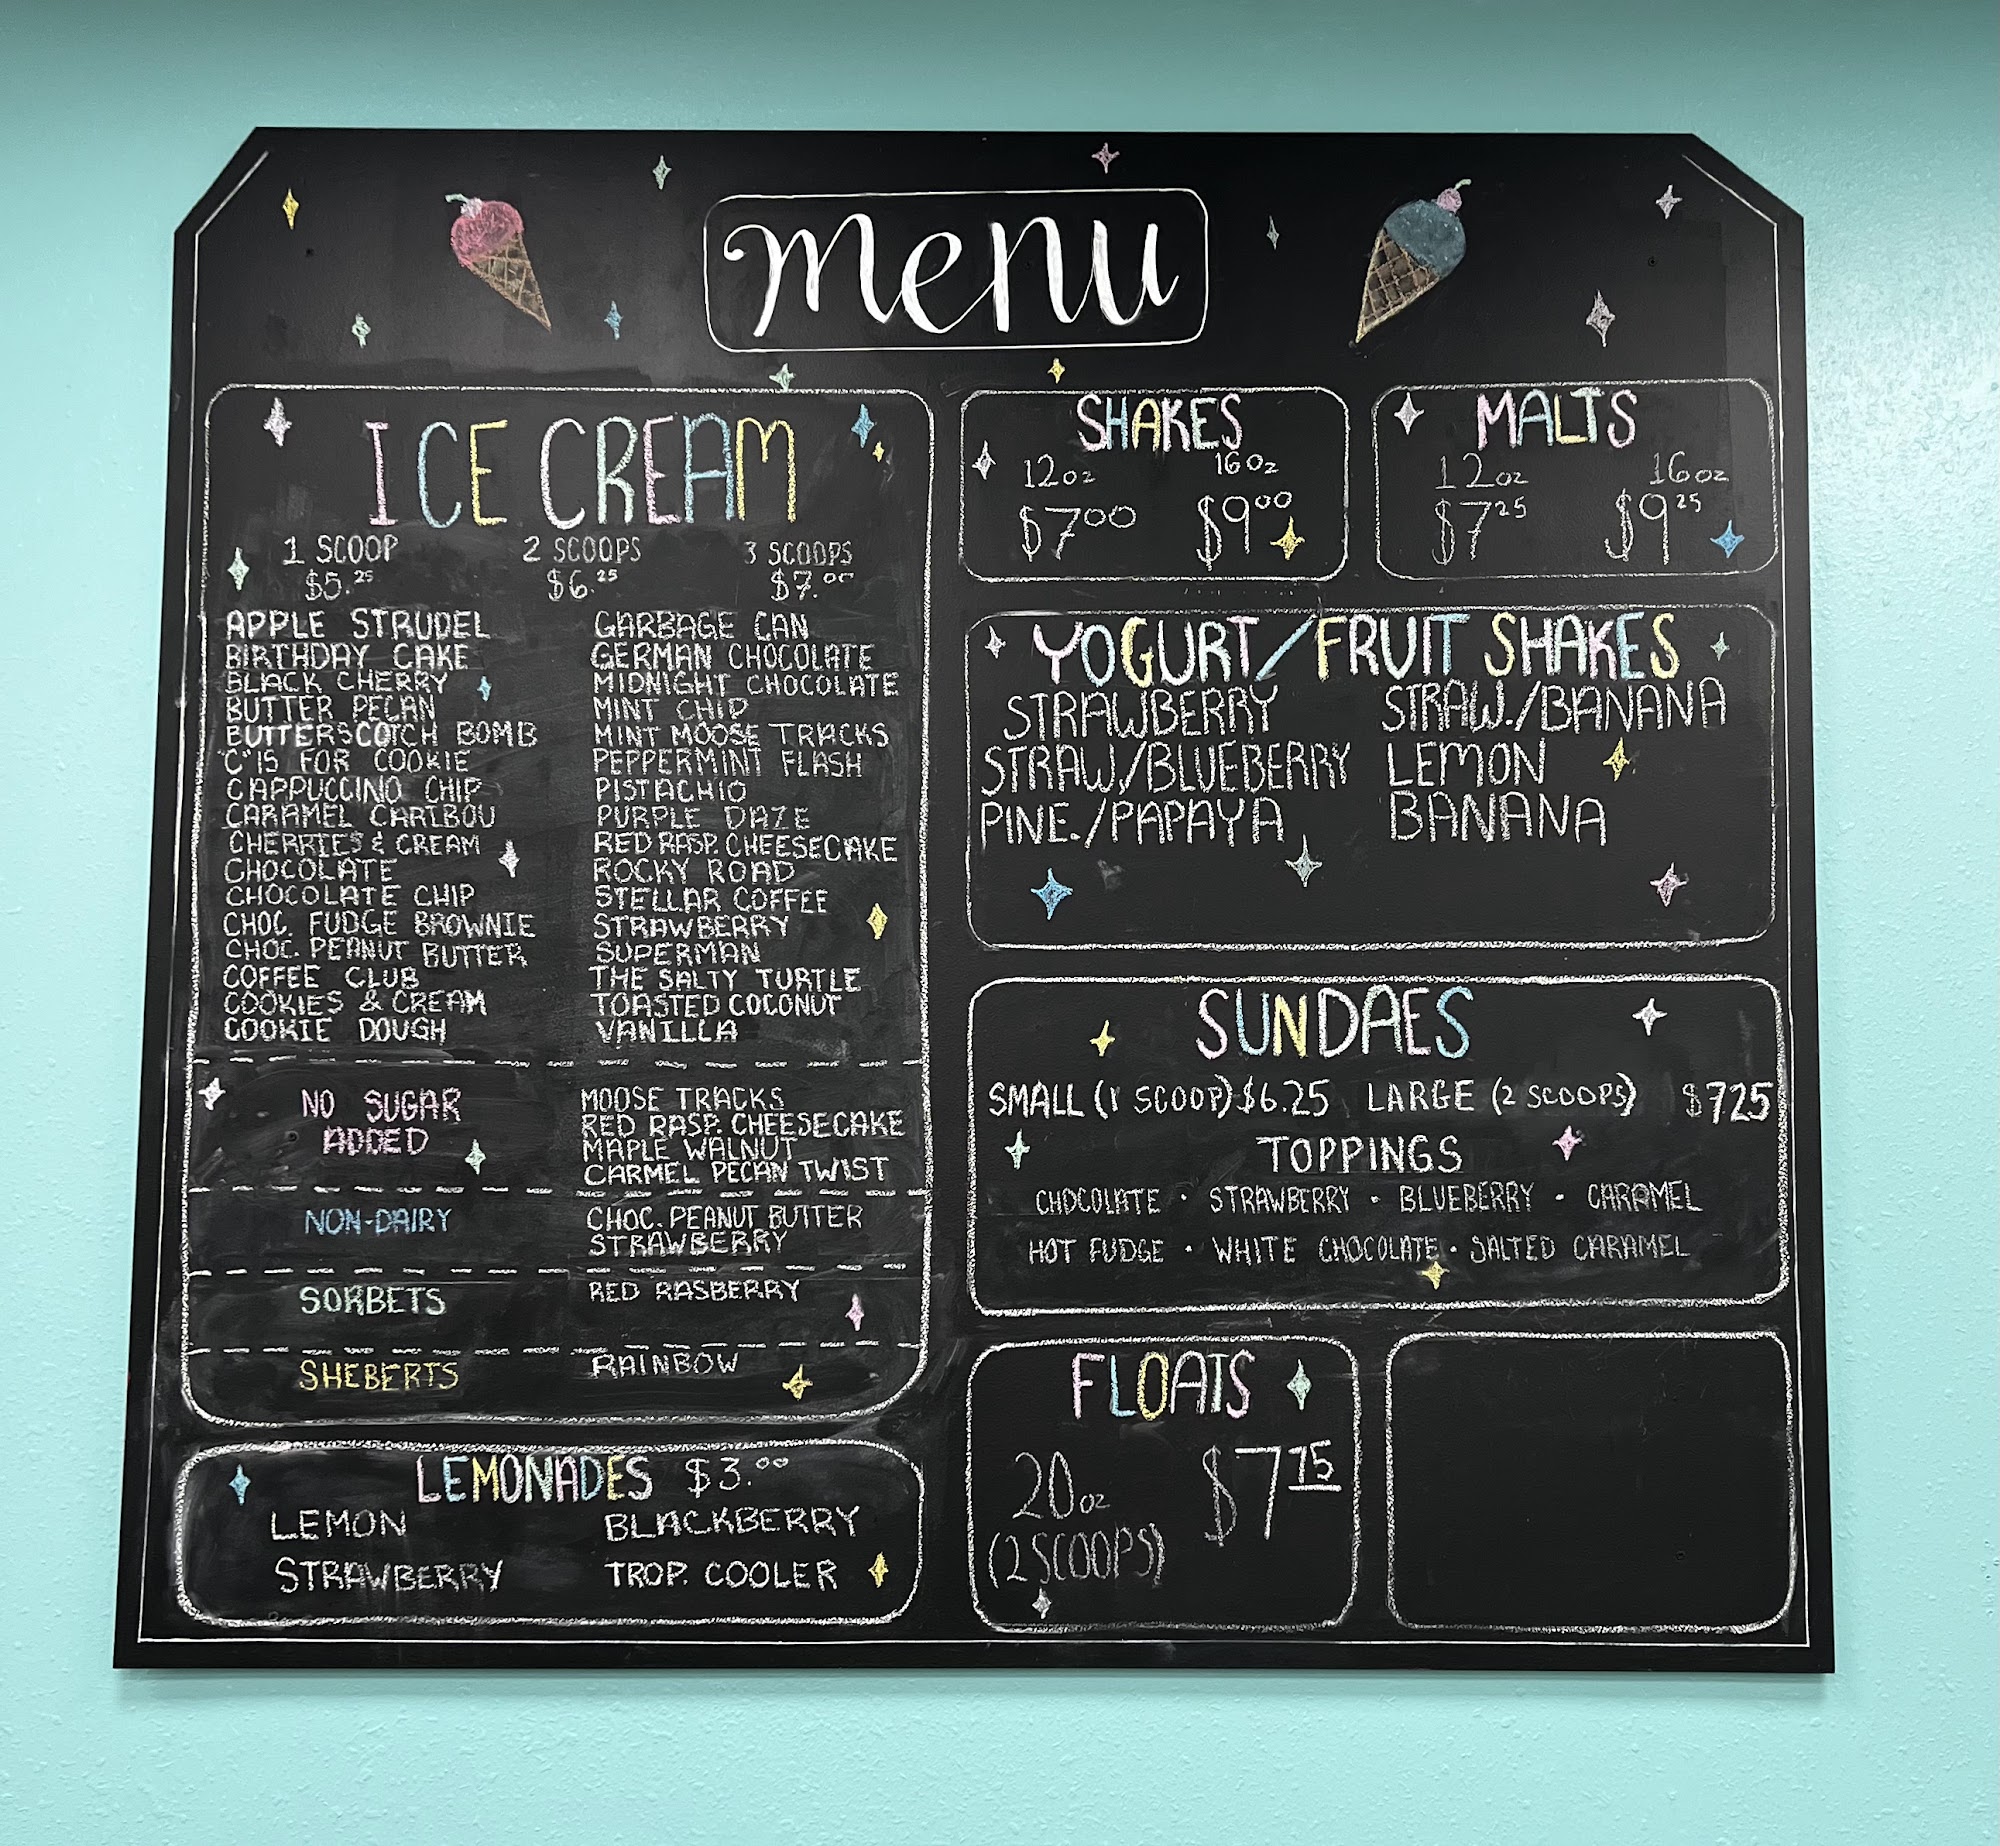 menu
ICE CREAM
1 SCOOP 2 SCOOPS 3 SCOOPS
$5.25 $6.25 $7.00
APPLE STRUDEL
BIRTHDAY CAKE
BLACK CHERRY
BUTTER PECAN
BUTTERSCOTCH BOMB
"C" IS FOR COOKIE
CAPPUCCINO CHIP
CARAMEL CARIBOU
CHERRIES & CREAM
CHOCOLATE
CHOCOLATE CHIP
CHOC. FUDGE BROWNIE
CHOC. PEANUT BUTTER
COFFEE CLUB
COOKIES & CREAM
COOKIE DOUGH
GARBAGE CAN
GERMAN CHOCOLATE
MIDNIGHT CHOCOLATE
MINT CHIP
MINT MOOSE TRACKS
PEPPERMINT FLASH
PISTACHIO
PURPLE DAZE
RED RASP. CHEESECAKE
ROCKY ROAD
STELLAR COFFEE
STRAWBERRY
SUPERMAN
THE SALTY TURTLE
TOASTED COCONUT
VANILLA
NO SUGAR
ADDED
MOOSE TRACKS
RED RASP. CHEESECAKE
MAPLE WALNUT
CARMEL PECAN TWIST
NON-DAIRY
CHOC. PEANUT BUTTER
STRAWBERRY
SORBETS
RED RASBERRY
SHEBERTS
RAINBOW
LEMONADES $3.00
LEMON BLACKBERRY
STRAWBERRY TROP. COOLER
SHAKES
12oz 16oz
$7.00 $9.00
MALTS
12oz 16oz
$7.25 $9.25
YOGURT/FRUIT SHAKES
STRAWBERRY STRAW./BANANA
STRAW/BLUEBERRY LEMON
PINE./PAPAYA BANANA
SUNDAES
SMALL (1 SCOOP) $6.25 LARGE (2 SCOOPS) $7.25
TOPPINGS
CHOCOLATE · STRAWBERRY · BLUEBERRY · CARAMEL
HOT FUDGE · WHITE CHOCOLATE · SALTED CARAMEL
FLOATS
20oz $7.75
(2 SCOOPS)